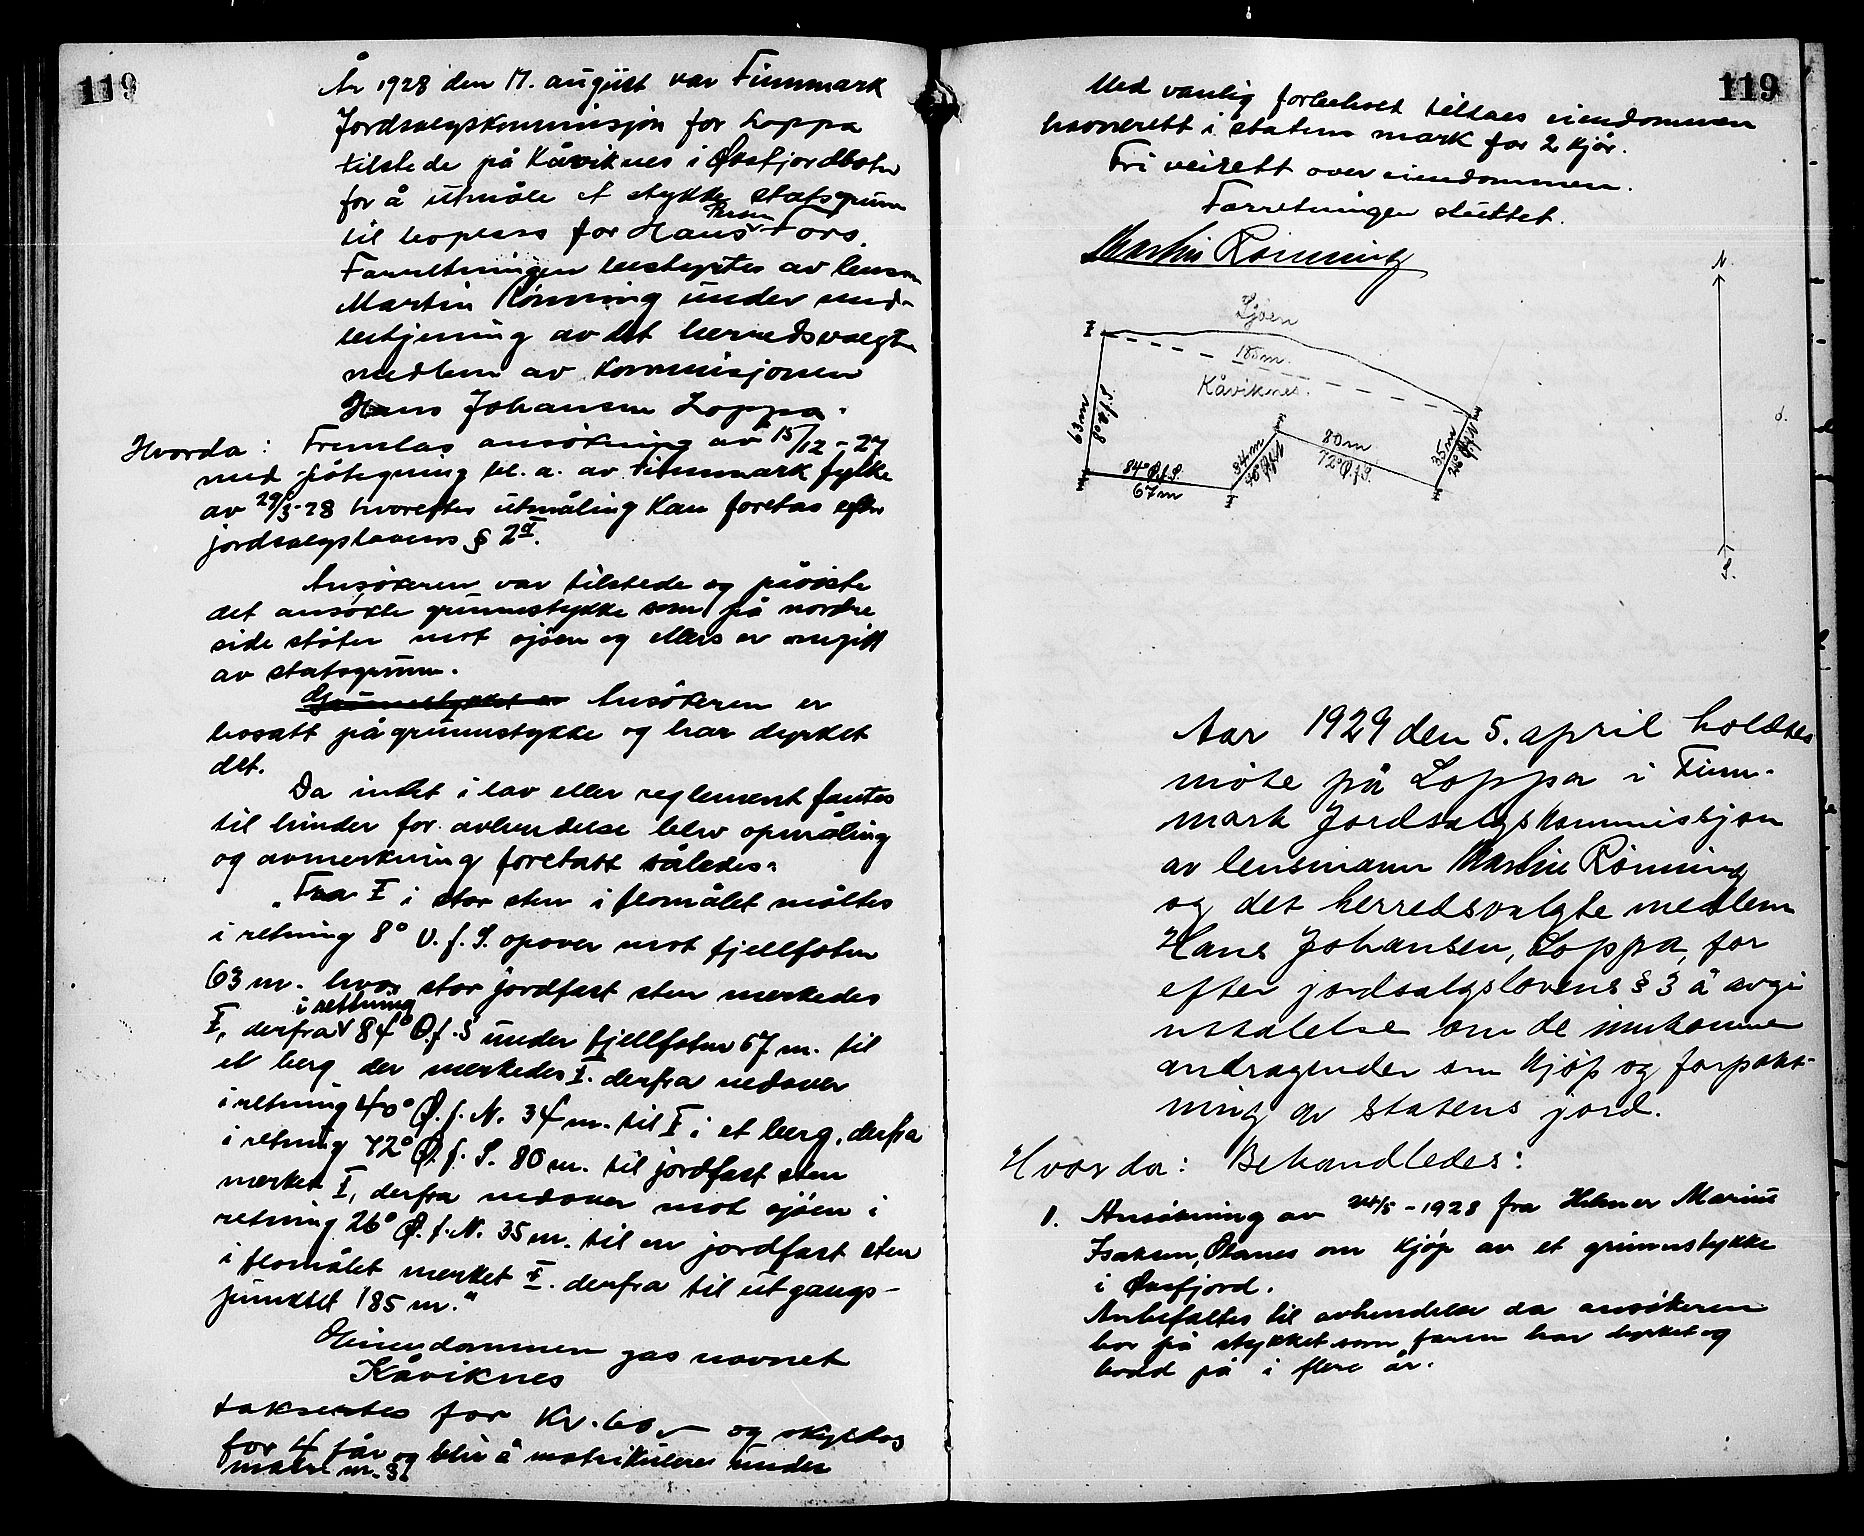 119
År 1928 den 17. august var Finnmark
Jordsalgskommisjon for Loppa
tilstede på Kåviknes i Øksfjordbotn
for å utmåle et stykke statsgrunn
til boplass for Hans Fors.
Forretningen bestyrtes av lensm.
Martin Rønning under med-
betjening av det herredsvalgte
medlem av kommisjonen
Hans Johansen Loppa.
Hvorda: Fremlas ansökning av 15/12-27
med påtegning bl. a. av Finnmark fylke
av 29/3-28 hvorefter utmåling kan foretas efter
jordsalgslovens § 2
Ansökeren var tilstede og påviste
det ansökte grunnstykke som på nordre
side støter mot sjöen og ellers er omgitt
av statsgrunn.
Grunnstykket er Ansökeren er
bosatt på grunnstykke og har dyrket
det.
Da intet i lov eller reglement fantes
til hinder for avhendelse blev opmåling
og avmerkning foretatt således:
"Fra I i stor sten i flomålet måltes
i retning 8° V. f. S. opover mot fjellfoten
63 m. hvor stor jordfast sten merkedes
i rettning
I, derfra 84° Ø. f. S under fjellfoten 67 m. til
et berg der merkedes I. derfra nedover
i retning 40° Ø. f. N. 34 m. til I i et berg, derfra
i retning 72° Ø. f. S. 80 m. til jordfast sten
merket I, derfra nedover mot sjöen i
retning 26° Ø. f. N. 35 m. til en jordfast sten
i flomålet merket I. derfra til utgangs-
punktet 185 m."
Eiendommen gas navnet
Kåviknes
taksertes for Kr. 60,- og skyldes
for 4 får og blir å matrikulere under
119
Med vanlig forbehold tillaes eiendommen
havnerett i statens mark for 2 kjör.
Fri veirett over eiendommen.
Forretningen sluttet.
Martin Rönning
N.
Sjöen
I
185 m.
Kåviknes.
63 m
8° V.f.S
84° Ø.f.S.
67 m
34 m
40° Ø.f.N
80 m
72° Ø.f.S.
35 m
26° Ø.f.N
I
S.
Aar 1929 den 5. april holdtes
möte på Loppa i Finn-
mark Jordsalgskommissjon
av lensmann Martin Rönning
og det herredsvalgte medlem
Hans Johansen, Loppa, for
efter jordsalgslovens § 3 å avgi
uttalelse om de innkomne
andragender om kjöp og forpakt-
ning av statens jord.
Hvorda: Behandledes:
1. Ansökning av 24/5-1928 fra Hilmer Marius
Isaksen, om kjöp av et grunnstykke
i Öksfjord.
Anbefaltes til avhendelse da ansökeren
bor på stykket som faren har dyrket og
bodd på i flere år.